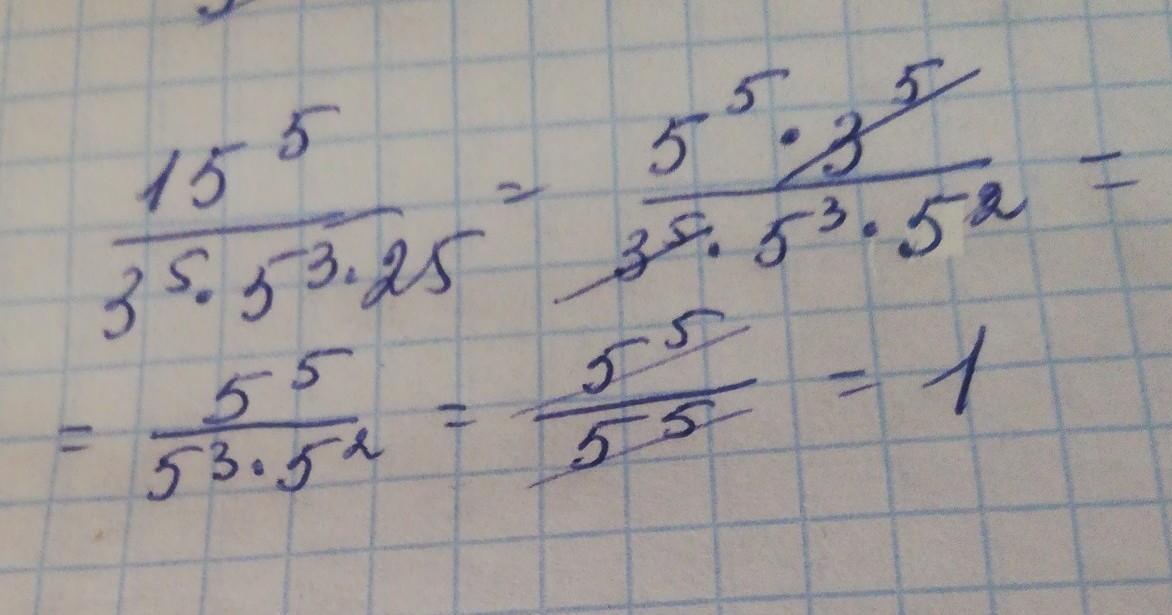 15^5 / (3^5 · 5^3 · 25) = (5^5 · 3^5) / (3^5 · 5^3 · 5^2) =
= 5^5 / (5^3 · 5^2) = 5^5 / 5^5 = 1